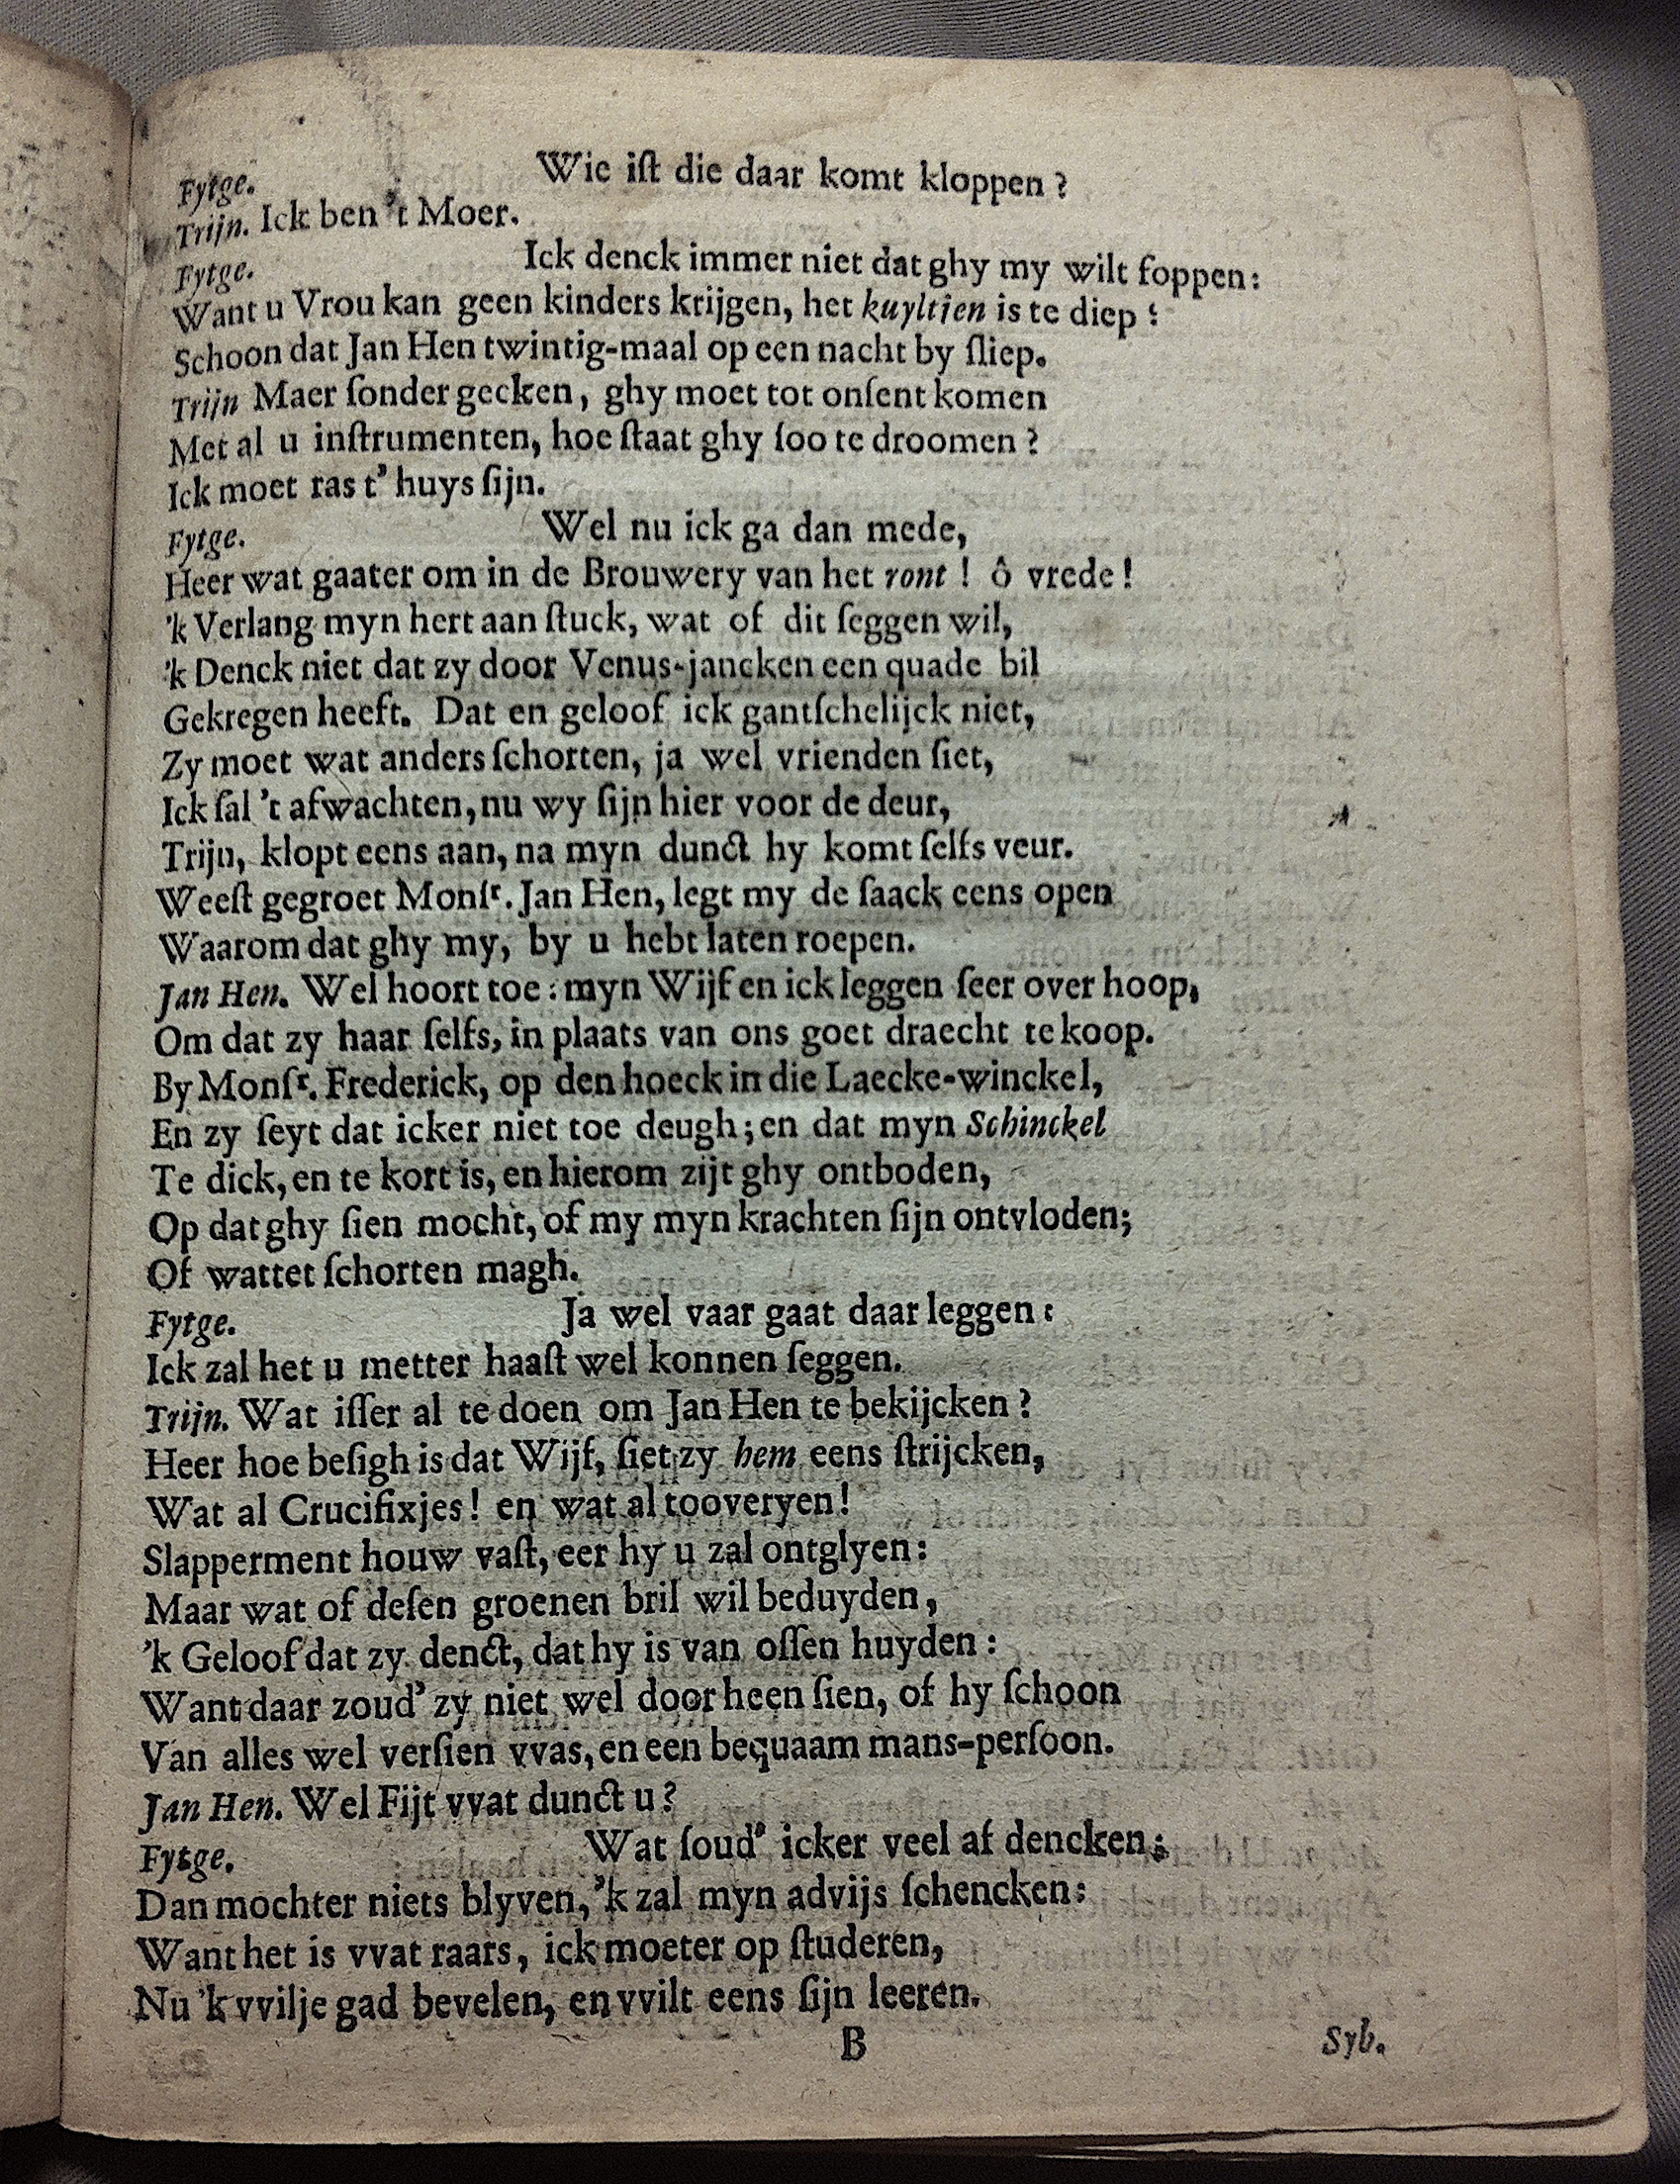 Fytge. Wie iſt die daar komt kloppen?
Trijn. Ick ben 't Moer.
Fytge. Ick denck immer niet dat ghy my wilt foppen:
Want u Vrou kan geen kinders krijgen, het kuyltjen is te diep:
Schoon dat Jan Hen twintig-maal op een nacht by ſliep.
Trijn Maer ſonder gecken, ghy moet tot onſent komen
Met al u inſtrumenten, hoe ſtaat ghy ſoo te droomen?
Ick moet ras t' huys ſijn.
Fytge. Wel nu ick ga dan mede,
Heer wat gaater om in de Brouwery van het ront! ô vrede!
'k Verlang myn hert aan ſtuck, wat of dit ſeggen wil,
'k Denck niet dat zy door Venus-jancken een quade bil
Gekregen heeft. Dat en geloof ick gantſchelijck niet,
Zy moet wat anders ſchorten, ja wel vrienden ſiet,
Ick ſal 't afwachten, nu wy ſijn hier voor de deur,
Trijn, klopt eens aan, na myn dunct hy komt ſelfs veur.
Weeſt gegroet Monſr. Jan Hen, legt my de ſaack eens open
Waarom dat ghy my, by u hebt laten roepen.
Jan Hen. Wel hoort toe: myn Wijf en ick leggen ſeer over hoop,
Om dat zy haar ſelfs, in plaats van ons goet draecht te koop.
By Monſr. Frederick, op den hoeck in die Laecke-winckel,
En zy ſeyt dat icker niet toe deugh; en dat myn Schinckel
Te dick, en te kort is, en hierom zijt ghy ontboden,
Op dat ghy ſien mocht, of my myn krachten ſijn ontvloden;
Of wattet ſchorten magh.
Fytge. Ja wel vaar gaat daar leggen:
Ick zal het u metter haaſt wel konnen ſeggen.
Trijn. Wat iſſer al te doen om Jan Hen te bekijcken?
Heer hoe beſigh is dat Wijf, ſiet zy hem eens ſtrijcken,
Wat al Crucifixjes! en wat al tooveryen!
Slapperment houw vaſt, eer hy u zal ontglyen:
Maar wat of deſen groenen bril wil beduyden,
'k Geloof dat zy denct, dat hy is van oſſen huyden:
Want daar zoud' zy niet wel door heen ſien, of hy ſchoon
Van alles wel verſien vvas, en een bequaam mans-perſoon.
Jan Hen. Wel Fijt vvat dunct u?
Fytge. Wat ſoud' icker veel af dencken;
Dan mochter niets blyven, 'k zal myn advijs ſchencken:
Want het is vvat raars, ick moeter op ſtuderen,
Nu 'k vvilje gad bevelen, en vvilt eens ſijn leeren.
B Syb.